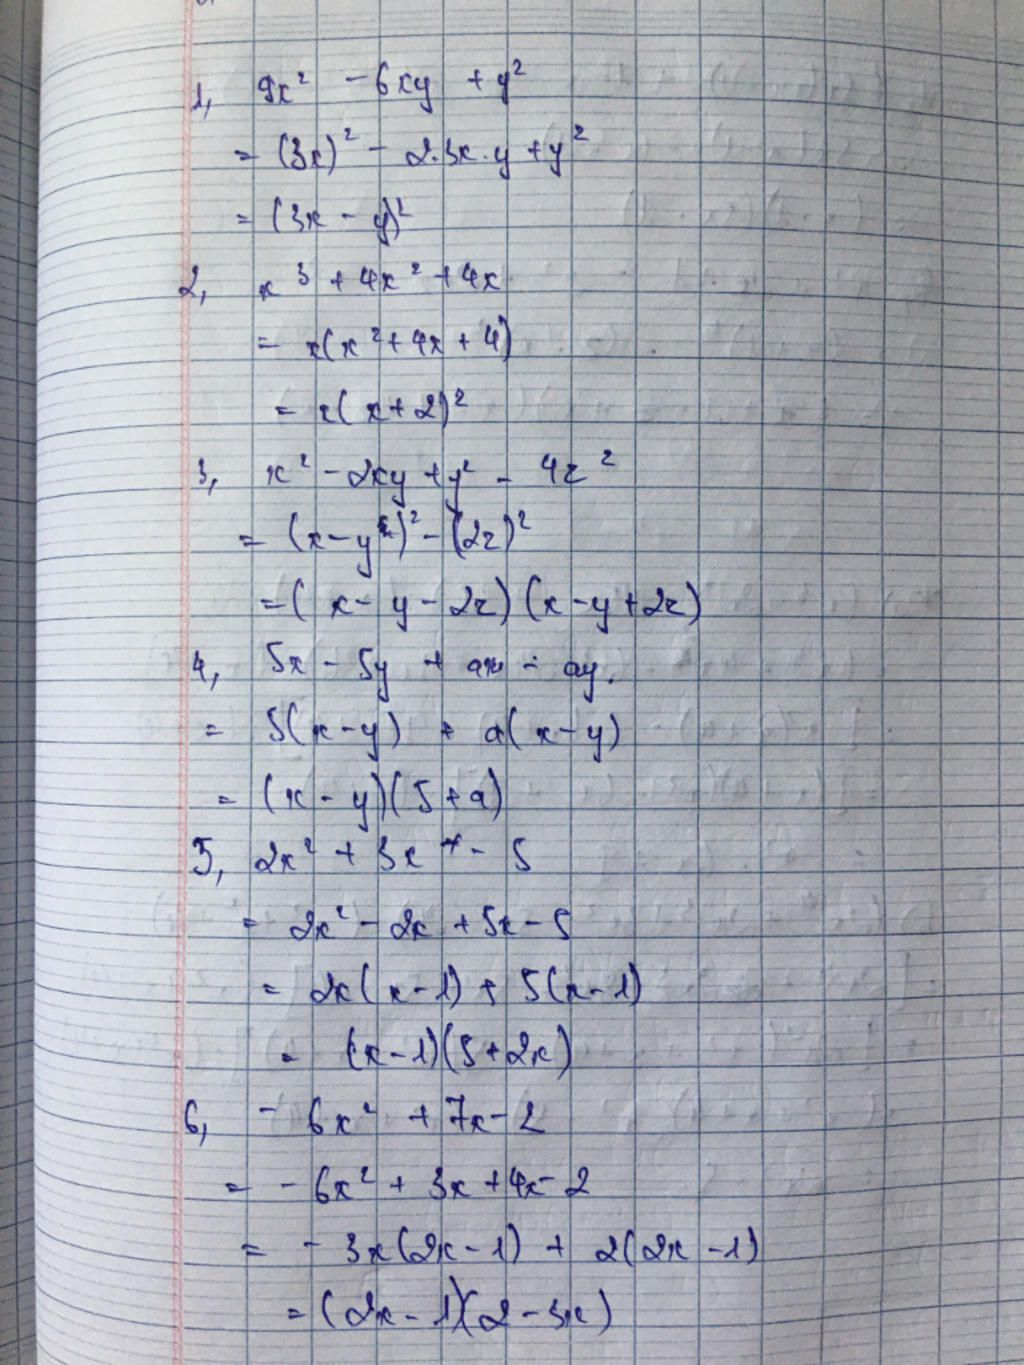 1, 9x² - 6xy + y²
= (3x)² - 2.3x.y + y²
= (3x - y)²
2, x³ + 4x² + 4x
= x(x² + 4x + 4)
= x(x + 2)²
3, x² - 2xy + y² - 4z²
= (x - y)² - (2z)²
= (x - y - 2z)(x - y + 2z)
4, 5x - 5y + ax - ay.
= 5(x - y) + a(x - y)
= (x - y)(5 + a)
5, 2x² + 3x - 5
= 2x² - 2x + 5x - 5
= 2x(x - 1) + 5(x - 1)
= (x - 1)(5 + 2x)
6, - 6x² + 7x - 2
= - 6x² + 3x + 4x - 2
= - 3x(2x - 1) + 2(2x - 1)
= (2x - 1)(2 - 3x)